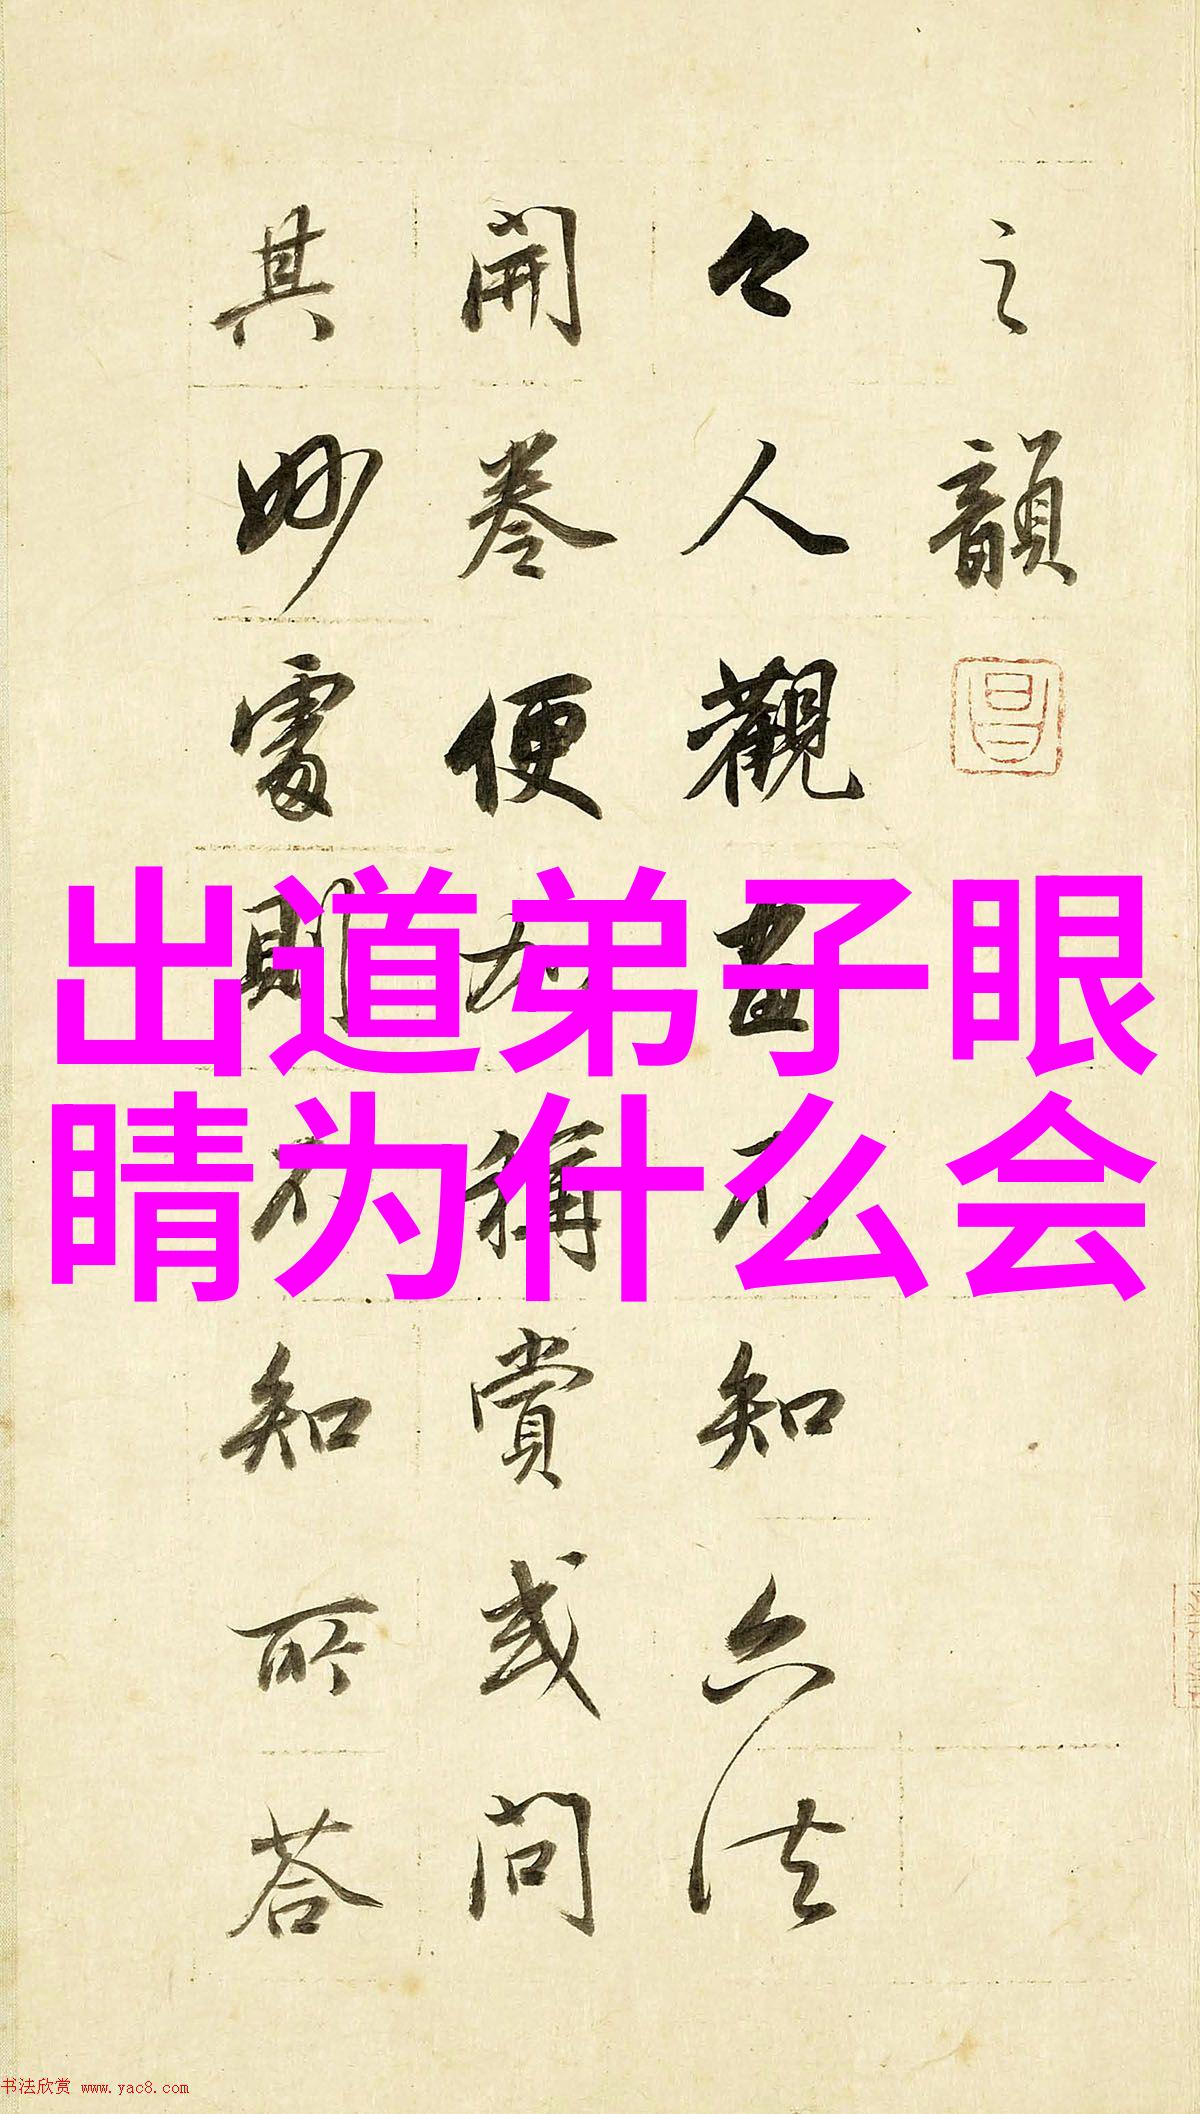 之韻
今人觀畫不知六法
開卷便加稱賞或問
其妙處則不知所荅
出道弟子眼
睛为什么会
书法欣赏 www.yac8.com